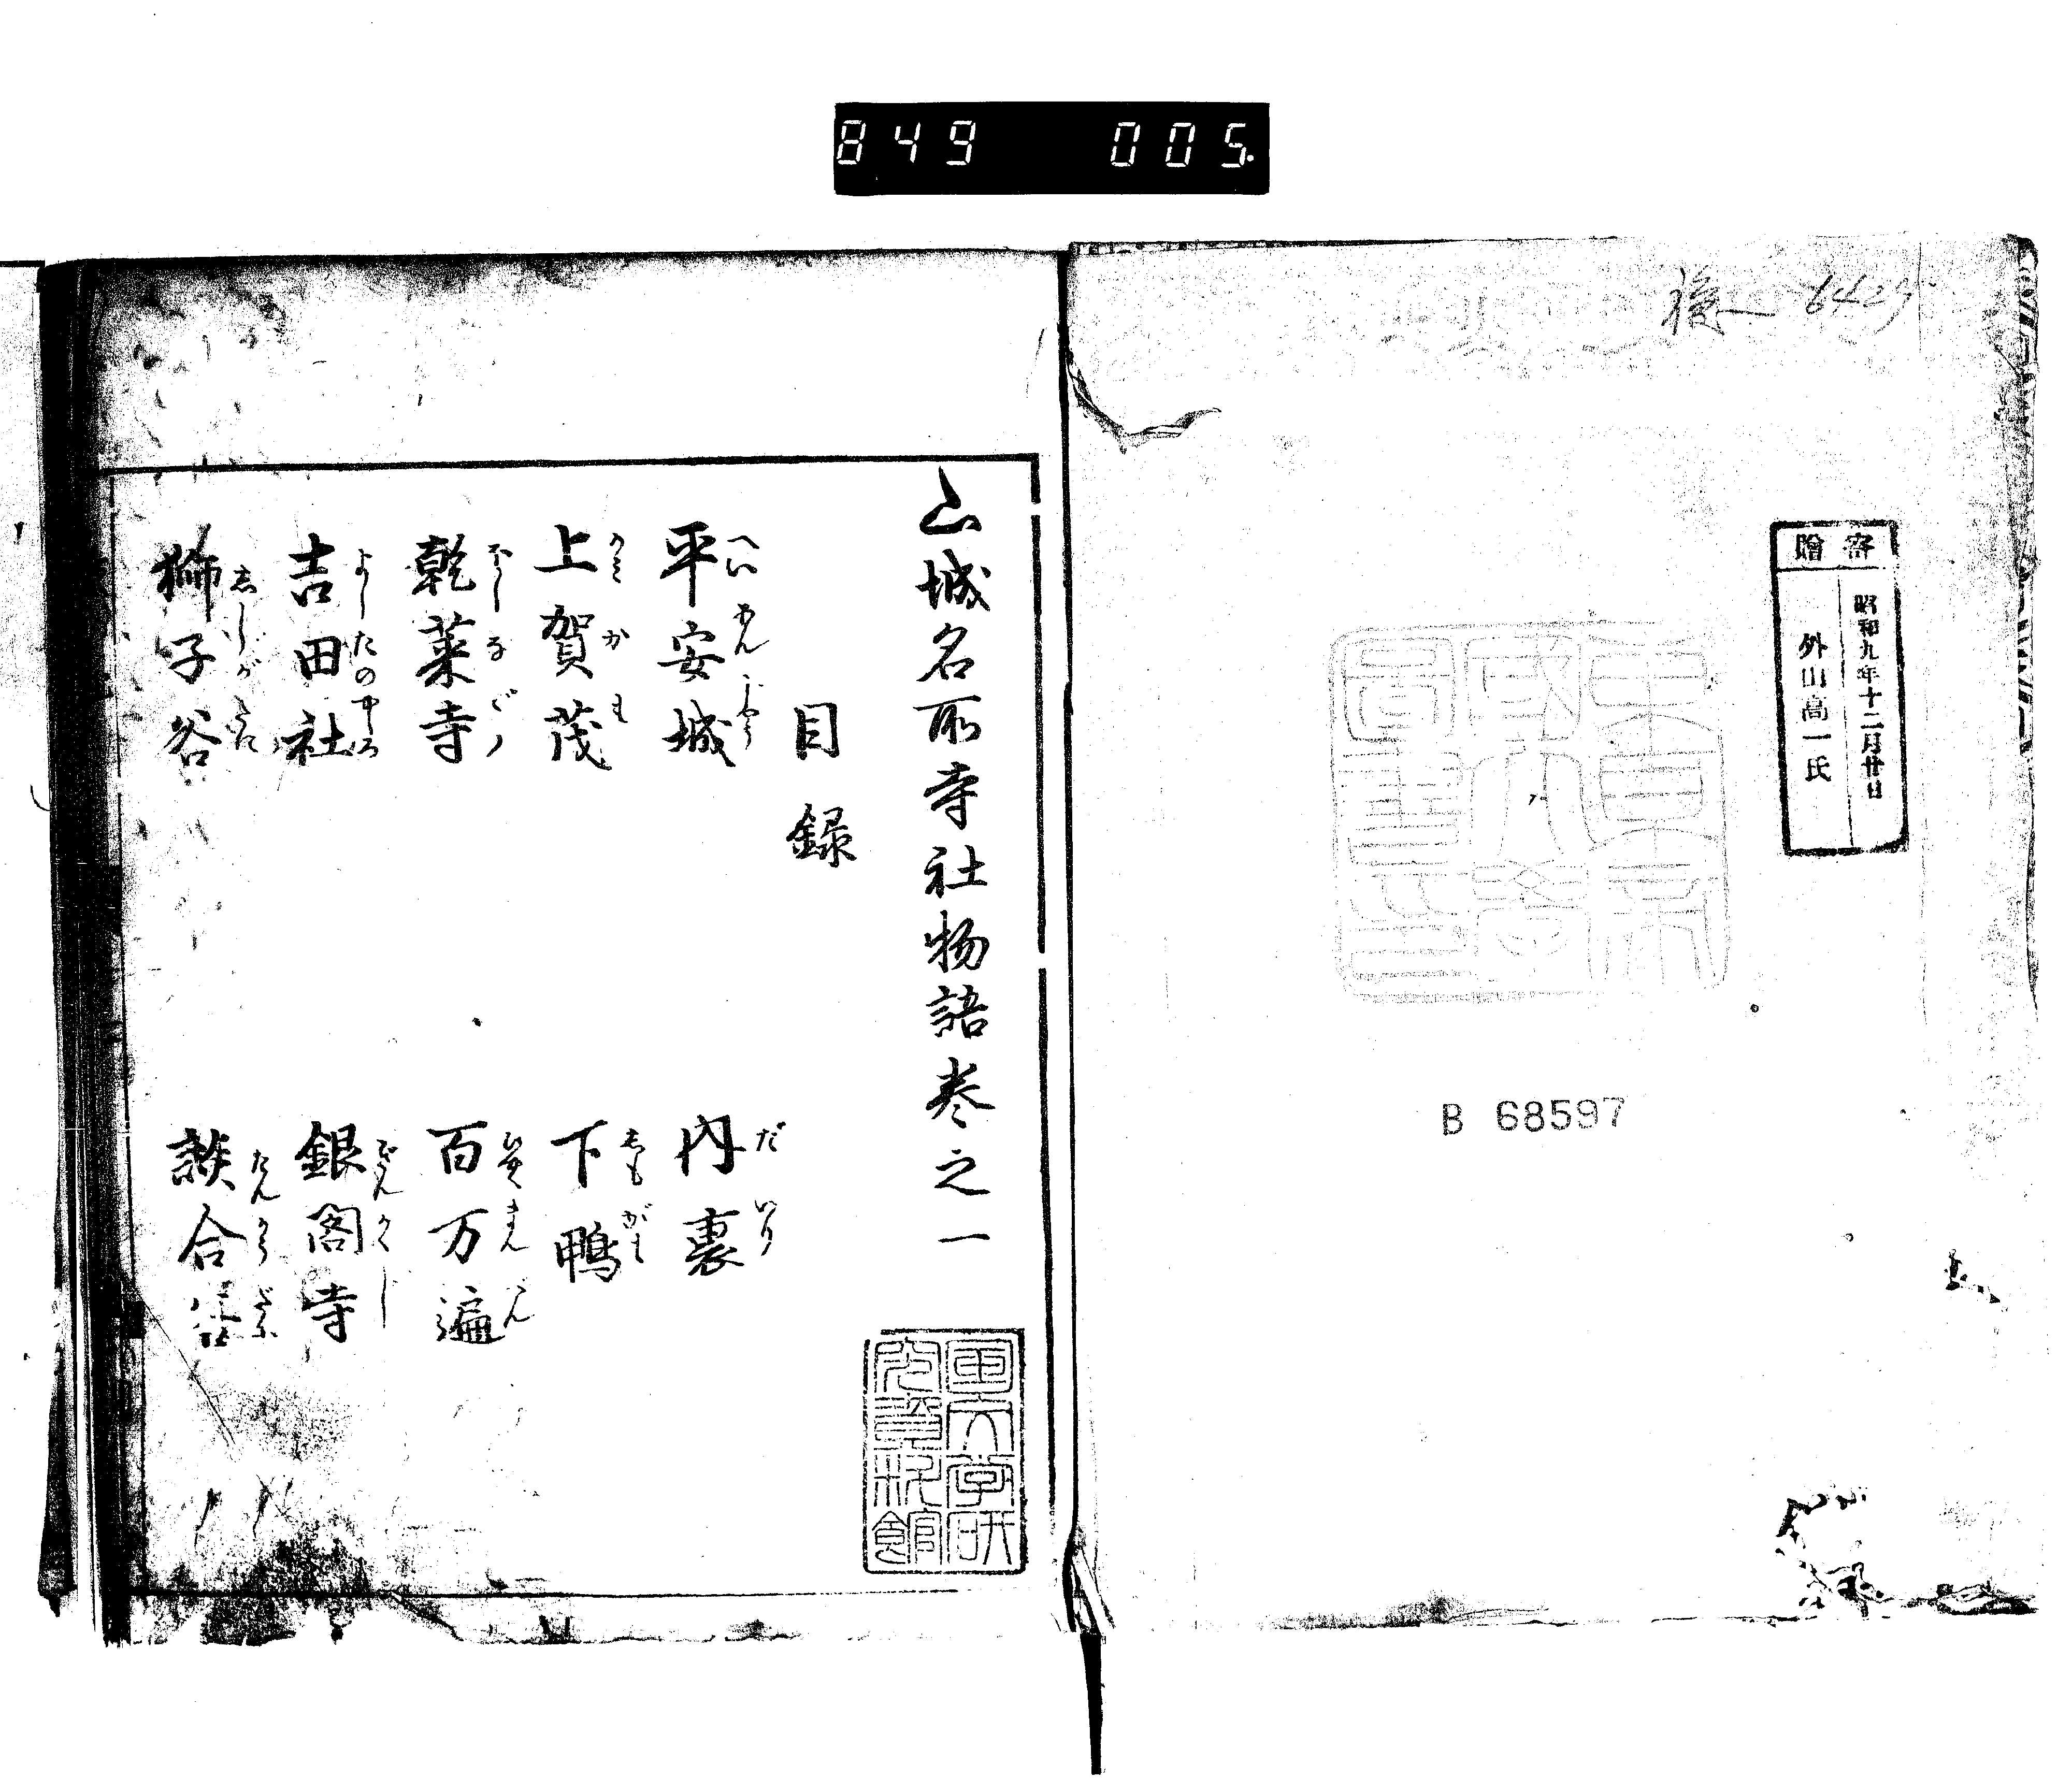 849 005
寄贈
昭和九年十二月廿日
外山高一氏
東京帝國大學圖書印
B 68597
山城名所寺社物語巻之一
目録
平安城 へいあんじやう
内裏 だいり
上賀茂 かミかも
下鴨 しもがも
乾菜寺 ほしなでら
百万遍 ひやくまんべん
吉田社 よしたのやしろ
銀閣寺 ぎんかくじ
獅子谷 ししがたに
談合谷 たんかうだに
国文学研究資料館